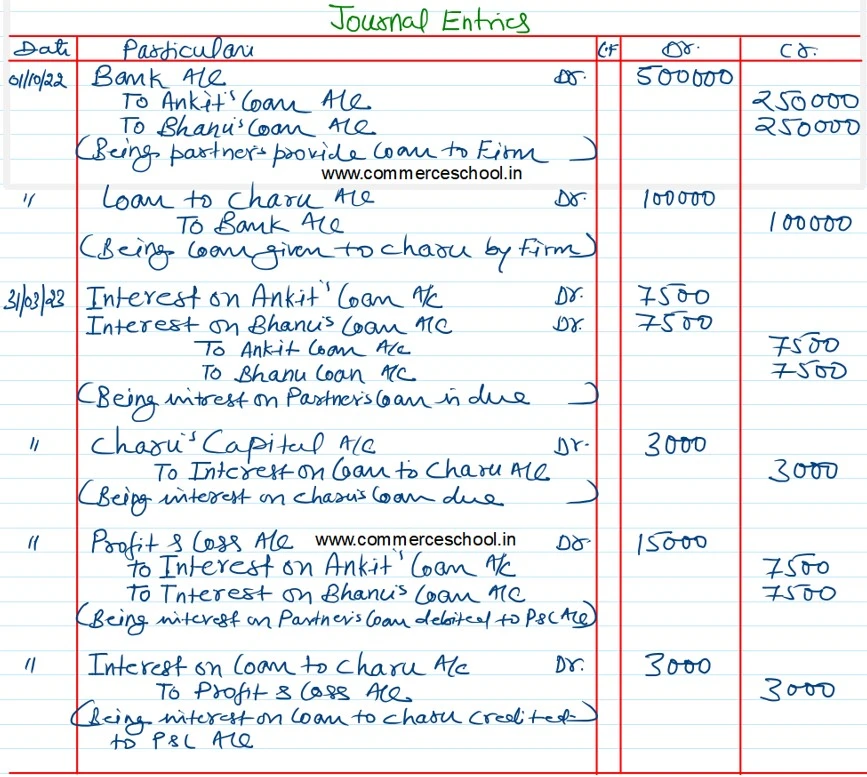 Journal Entries
Date Particulars L.F Dr. Cr.
01/10/22 Bank A/c Dr. 500000
To Ankit's Loan A/c 250000
To Bhanu's Loan A/c 250000
(Being partners provide loan to Firm)
www.commerceschool.in
" Loan to Charu A/c Dr. 100000
To Bank A/c 100000
(Being loan given to charu by Firm)
31/03/23 Interest on Ankit's Loan A/c Dr. 7500
Interest on Bhanu's Loan A/c Dr. 7500
To Ankit Loan A/c 7500
To Bhanu Loan A/c 7500
(Being intrest on Partner's loan in due)
" Charu's Capital A/c Dr. 3000
To Interest on Loan to Charu A/c 3000
(Being interest on charu's loan due)
" Profit & Loss A/c www.commerceschool.in Dr. 15000
To Interest on Ankit's Loan A/c 7500
To Interest on Bhanu's Loan A/c 7500
(Being interest on Partner's loan debited to P&L A/c)
" Interest on Loan to Charu A/c Dr. 3000
To Profit & Loss A/c 3000
(Being interest on loan to charu credited
to P&L A/c